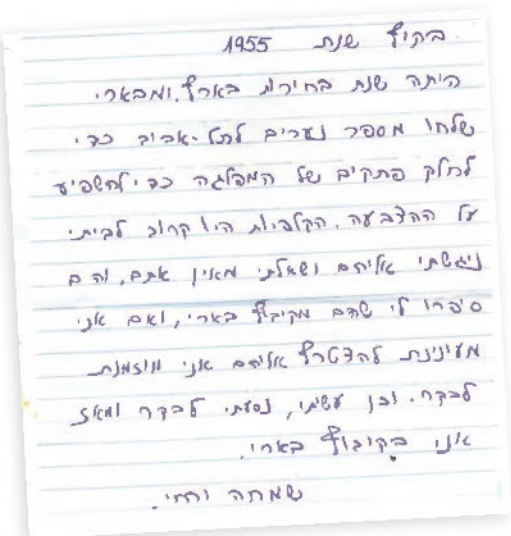 בקיץ שנת 1955
היתה שנת בחירות בארץ. ומבארי
שלחו מספר נערים לתל-אביב כדי
לחלק פתקים של המפלגה כדי להשפיע
על ההצבעה. הקלפיות היו קרוב לביתי
ניגשתי אליהם ושאלתי מאין אתם, והם
סיפרו לי שהם מקיבוץ בארי, ואם אני
מעונינת להצטרף אליהם אני מוזמנת
לבקר. וכן עשיתי, נסעתי לבקר ומאז
אני בקיבוץ בארי.
שמחה